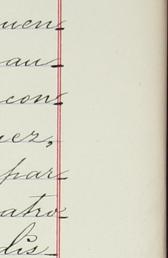 uen-
au-
con-
uez,
par-
atro-
dis-